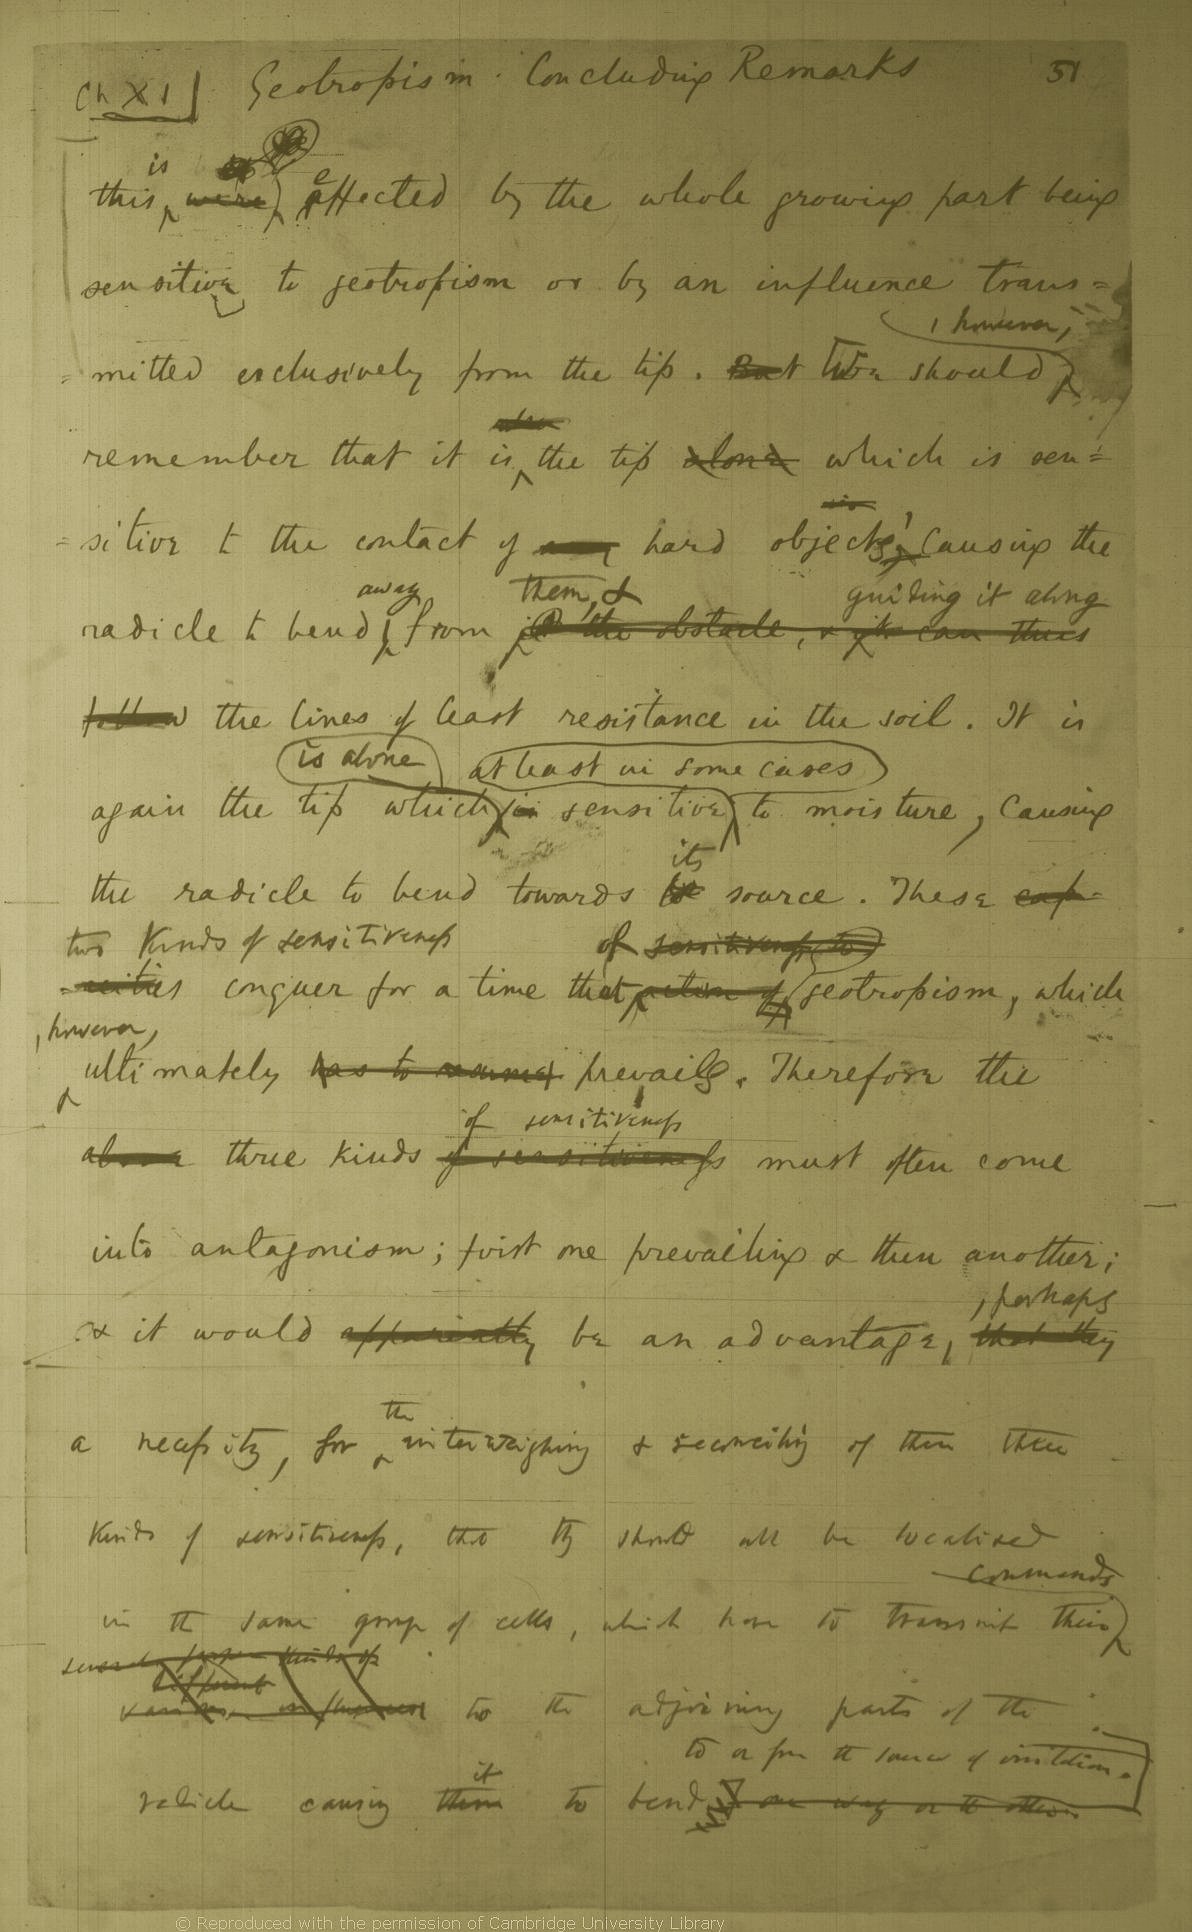 Ch XI
Geotropism. Concluding Remarks
51
is
this were effected by the whole growing part being
sensitive to geotropism or by an influence trans=
, however,
=mitted exclusively from the tip. But We should
also
remember that it is the tip alone which is sen=
=sitive to the contact of any hard objects, causing the
away them, & guiding it along
radicle to bend from the obstacle, & it can thus
follow the lines of least resistance in the soil. It is
is alone at least in some cases
again the tip which is sensitive to moisture, causing
its
the radicle to bend towards the source. These cap=
two kinds of sensitiveness of sensitiveness to
=acities conquer for a time that action of geotropism, which
, however,
ultimately has to resume prevails. Therefore the
of sensitiveness
above three kinds of sensitiveness must often come
into antagonism; first one prevailing & then another;
, perhaps
& it would apparently be an advantage, that they
the
a necessity, for interweighing & reconciling of these three
kinds of sensitiveness, that they should all be localised
commands
in the same group of cells, which have to transmit their
kinds of
different
various influences to the adjoining parts of the
to or from the source of irritation.
it
radicle causing them to bend one way or the other
© Reproduced with the permission of Cambridge University Library